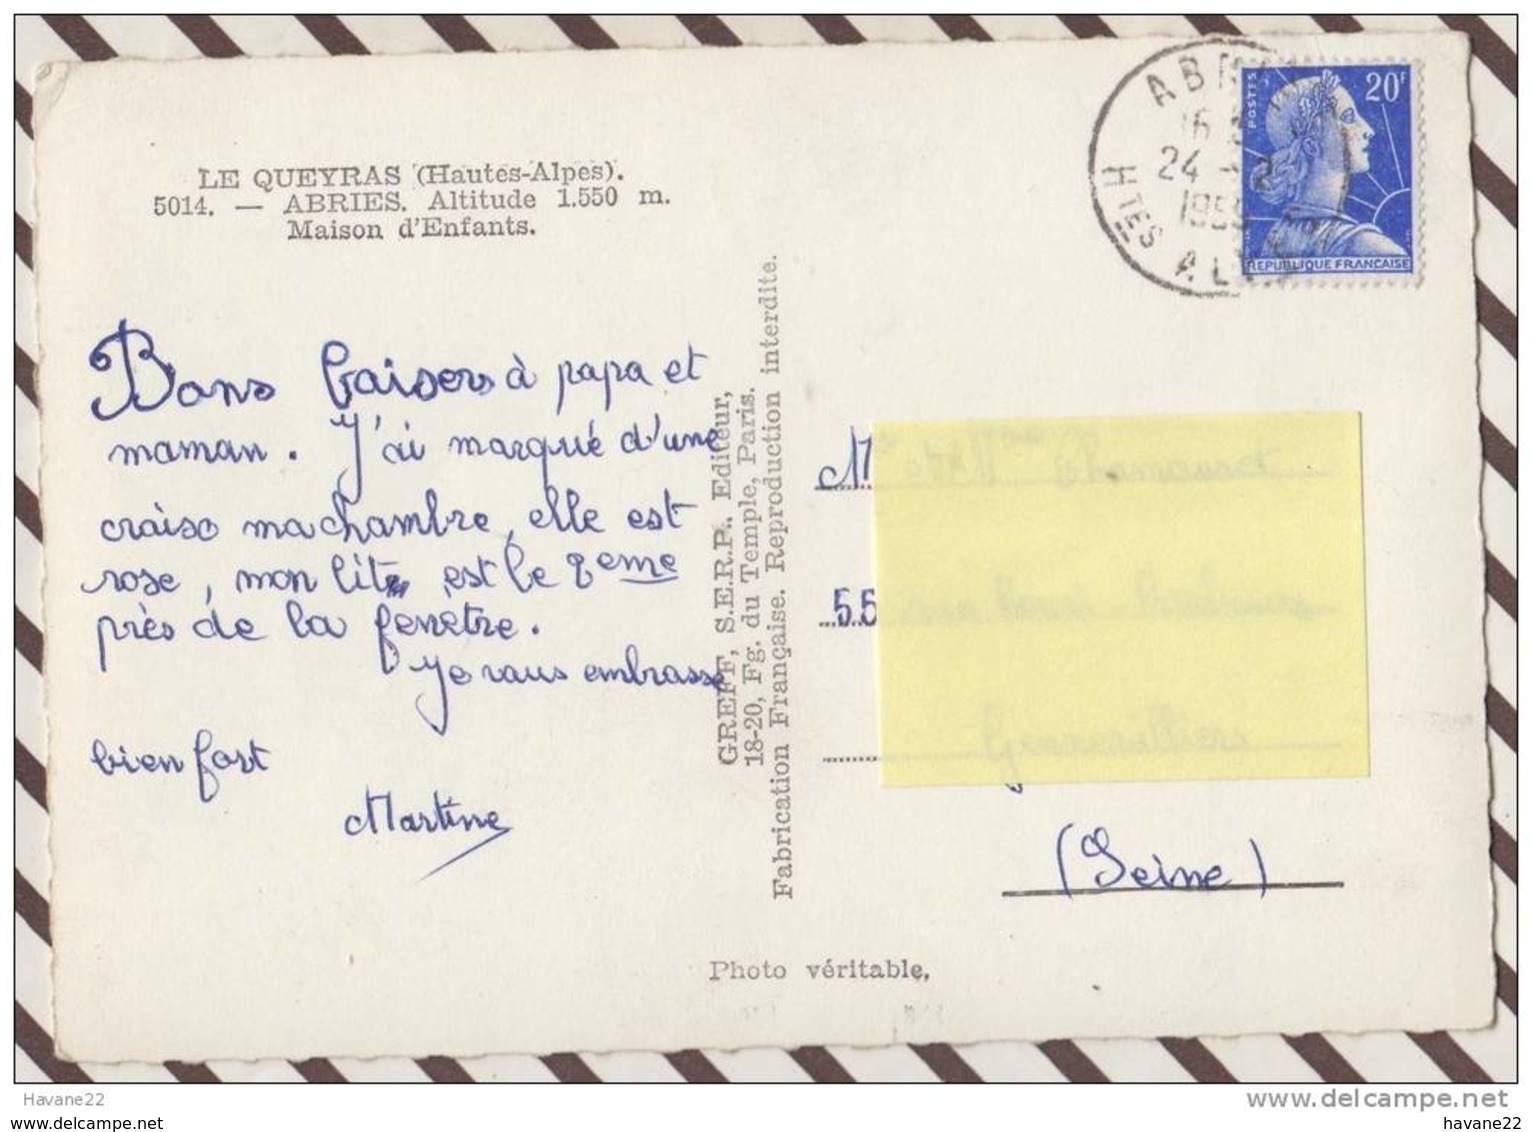 LE QUEYRAS (Hautes-Alpes).
5014. — ABRIES. Altitude 1.550 m.
Maison d'Enfants.
Bons baisers à papa et
maman. J'ai marqué d'une
craise ma chambre, elle est
rose, mon lit est le 2eme
près de la fenetre.
Je vous embrasse
bien fort
Martine
GREFF, S.E.R.P., Editeur,
18-20, Fg. du Temple, Paris.
Fabrication Française. Reproduction interdite.
Photo véritable,
24 - 2
HTES ALPES
POSTES
20F
REPUBLIQUE FRANÇAISE
M
55
Gennevilliers
(Seine)
Havane22
havane22
www.delcampe.net
www.delcampe.net
havane22